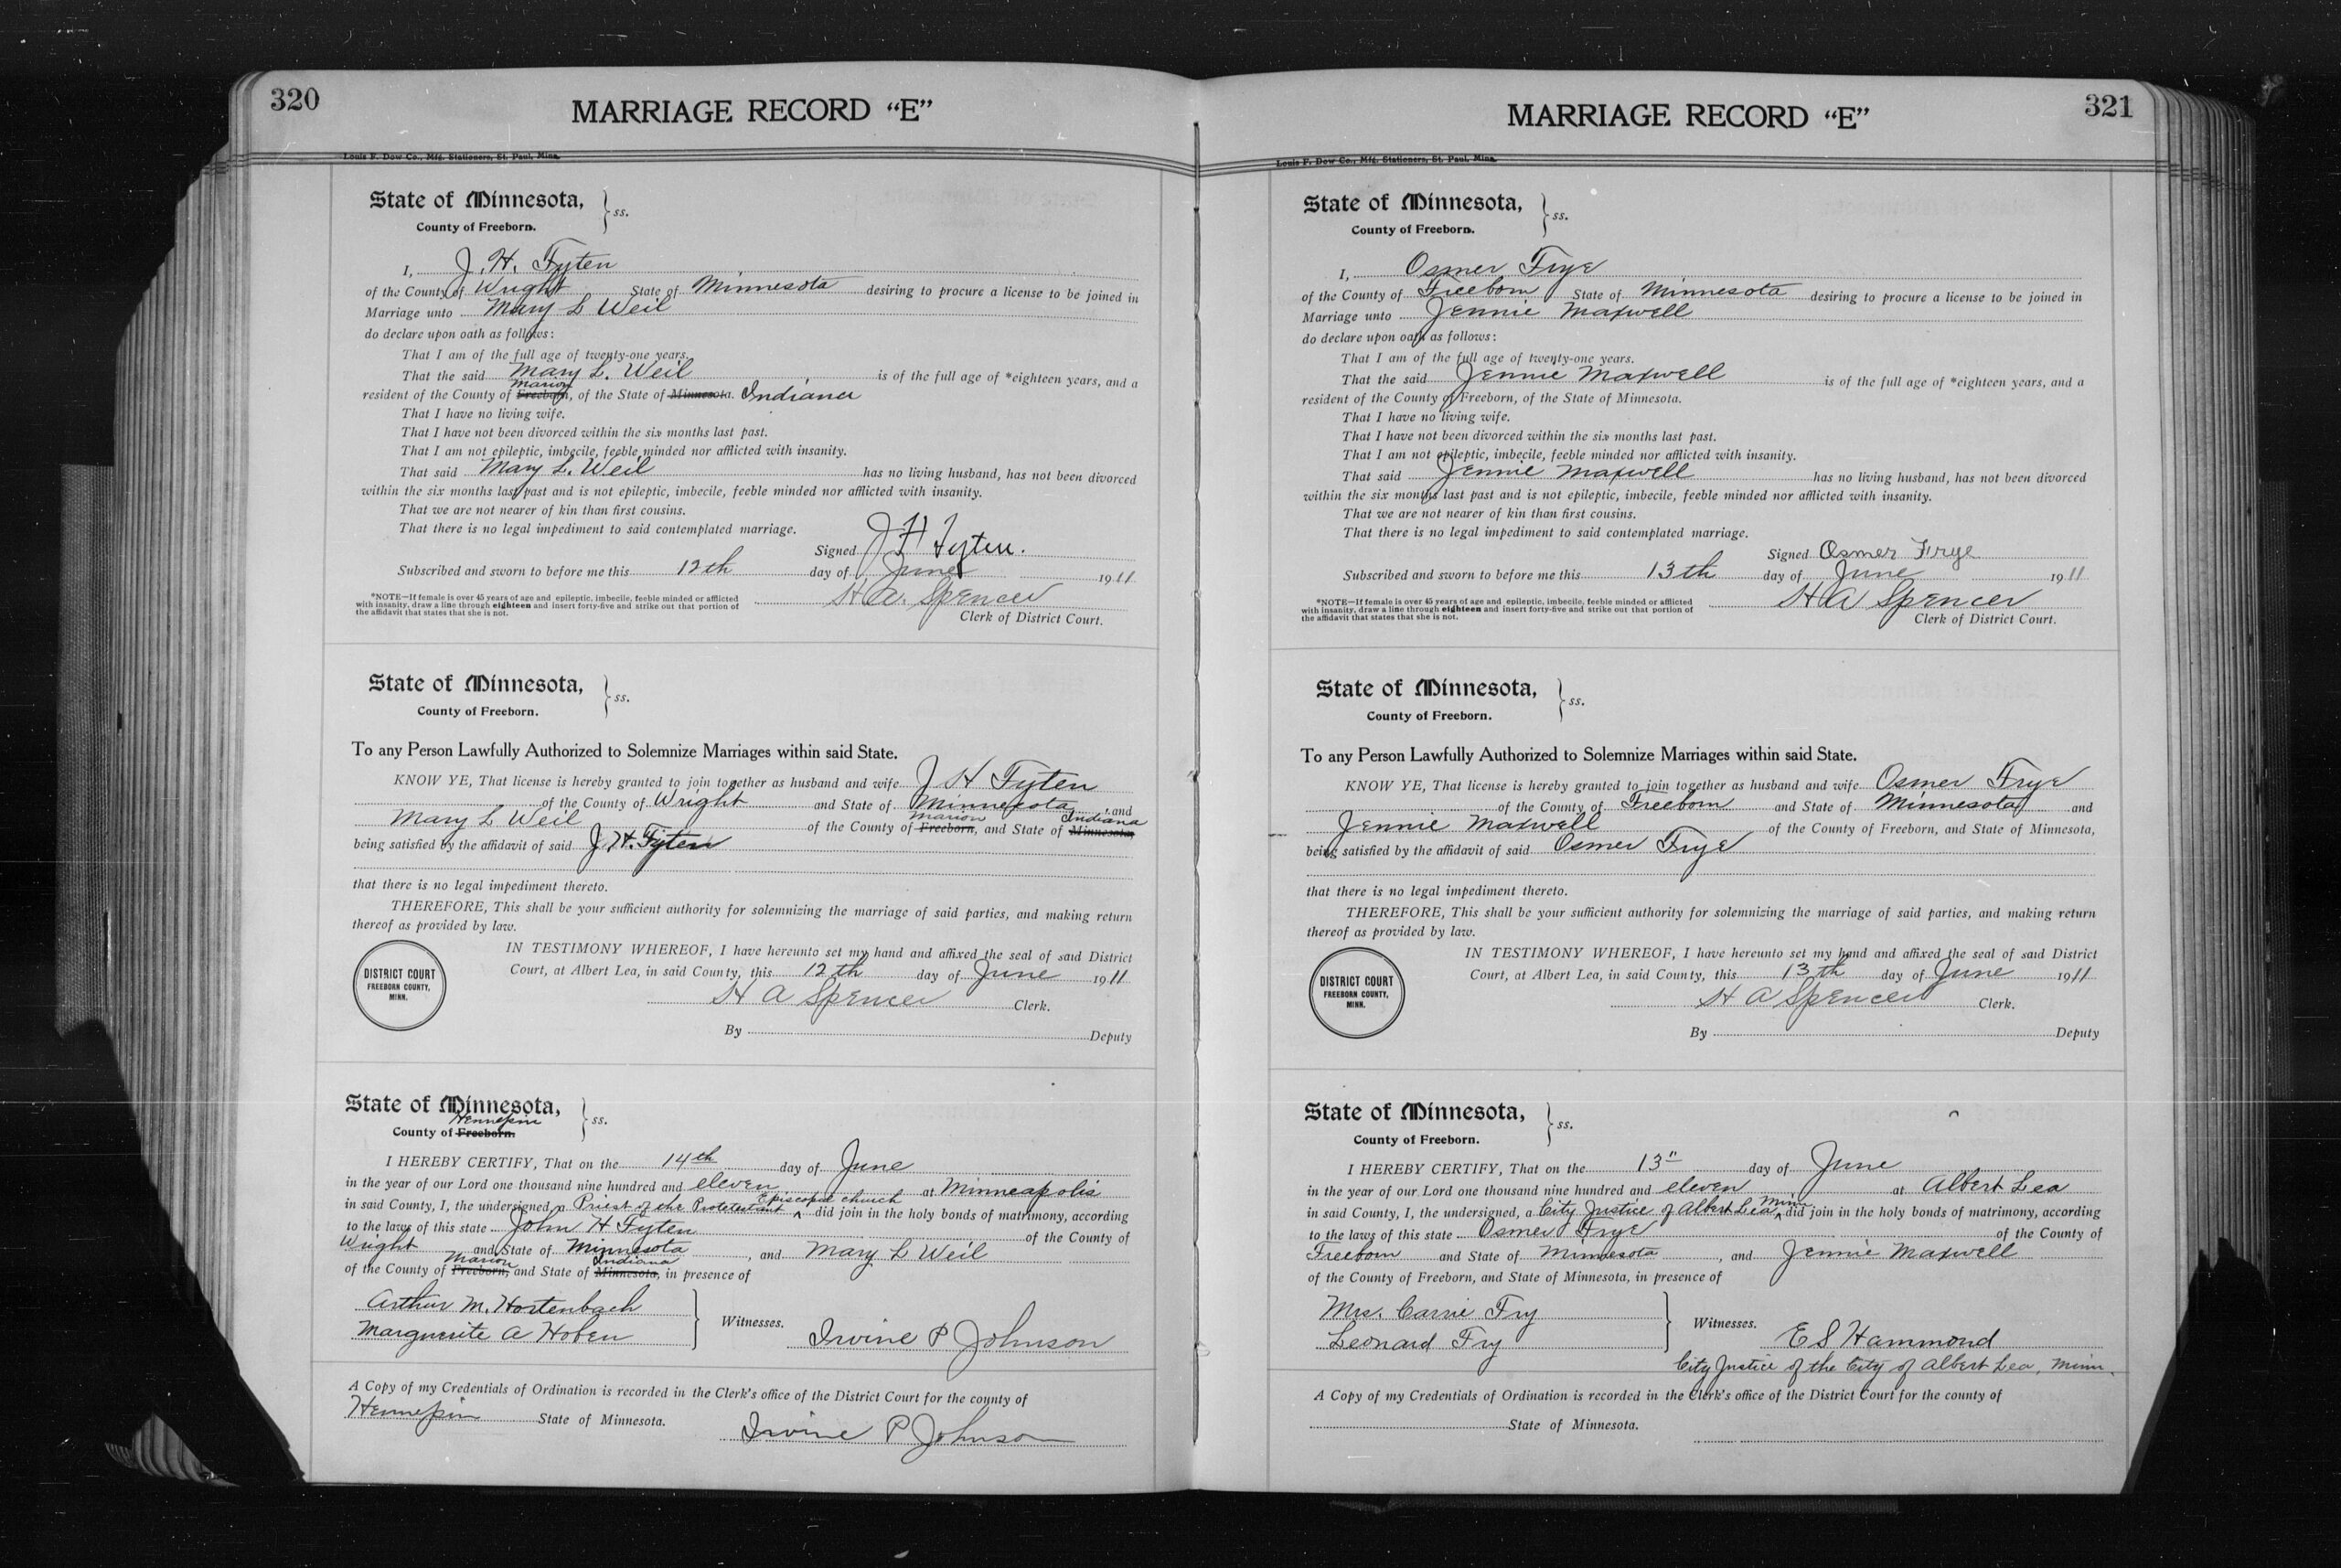 320
MARRIAGE RECORD “E”
Louis F. Dow Co., Mfg. Stationers, St. Paul, Minn.
State of Minnesota, } ss.
County of Freeborn.
I, J. H. Fyten
of the County of Wright State of Minnesota desiring to procure a license to be joined in
Marriage unto Mary L Weil
do declare upon oath as follows:
That I am of the full age of twenty-one years.
That the said Mary L. Weil is of the full age of *eighteen years, and a
Marion
resident of the County of Freeborn, of the State of Minnesota. Indiana
That I have no living wife.
That I have not been divorced within the six months last past.
That I am not epileptic, imbecile, feeble minded nor afflicted with insanity.
That said Mary L. Weil has no living husband, has not been divorced
within the six months last past and is not epileptic, imbecile, feeble minded nor afflicted with insanity.
That we are not nearer of kin than first cousins.
That there is no legal impediment to said contemplated marriage.
Signed J H Fyten.
Subscribed and sworn to before me this 12th day of June 1911
*NOTE—If female is over 45 years of age and epileptic, imbecile, feeble minded or afflicted
with insanity, draw a line through eighteen and insert forty-five and strike out that portion of
the affidavit that states that she is not.
H A. Spencer
Clerk of District Court.
State of Minnesota, } ss.
County of Freeborn.
To any Person Lawfully Authorized to Solemnize Marriages within said State.
KNOW YE, That license is hereby granted to join together as husband and wife J H Fyten
of the County of Wright and State of Minnesota, and
Marion Indiana
Mary L Weil of the County of Freeborn, and State of Minnesota,
being satisfied by the affidavit of said J. H. Fyten
that there is no legal impediment thereto.
THEREFORE, This shall be your sufficient authority for solemnizing the marriage of said parties, and making return
thereof as provided by law.
IN TESTIMONY WHEREOF, I have hereunto set my hand and affixed the seal of said District
Court, at Albert Lea, in said County, this 12th day of June 1911
DISTRICT COURT
FREEBORN COUNTY,
MINN.
H A Spencer Clerk.
By Deputy
State of Minnesota, } ss.
Hennepin
County of Freeborn.
I HEREBY CERTIFY, That on the 14th day of June
in the year of our Lord one thousand nine hundred and eleven at Minneapolis
Episcopal church
in said County, I, the undersigned a Priest of the Protestant ^ did join in the holy bonds of matrimony, according
to the laws of this state John H Fyten of the County of
Wright and State of Minnesota, and Mary L Weil
Marion Indiana
of the County of Freeborn, and State of Minnesota, in presence of
Arthur M. Hortenbach
Marguerite A Hoben
} Witnesses.
Irvine P Johnson
A Copy of my Credentials of Ordination is recorded in the Clerk's office of the District Court for the county of
Hennepin State of Minnesota.
Irvine P Johnson
321
MARRIAGE RECORD “E”
Louis F. Dow Co., Mfg. Stationers, St. Paul, Minn.
State of Minnesota, } ss.
County of Freeborn.
I, Osmer Frye
of the County of Freeborn State of Minnesota desiring to procure a license to be joined in
Marriage unto Jennie Maxwell
do declare upon oath as follows:
That I am of the full age of twenty-one years.
That the said Jennie Maxwell is of the full age of *eighteen years, and a
resident of the County of Freeborn, of the State of Minnesota.
That I have no living wife.
That I have not been divorced within the six months last past.
That I am not epileptic, imbecile, feeble minded nor afflicted with insanity.
That said Jennie Maxwell has no living husband, has not been divorced
within the six months last past and is not epileptic, imbecile, feeble minded nor afflicted with insanity.
That we are not nearer of kin than first cousins.
That there is no legal impediment to said contemplated marriage.
Signed Osmer Frye
Subscribed and sworn to before me this 13th day of June 1911
*NOTE—If female is over 45 years of age and epileptic, imbecile, feeble minded or afflicted
with insanity, draw a line through eighteen and insert forty-five and strike out that portion of
the affidavit that states that she is not.
H A Spencer
Clerk of District Court.
State of Minnesota, } ss.
County of Freeborn.
To any Person Lawfully Authorized to Solemnize Marriages within said State.
KNOW YE, That license is hereby granted to join together as husband and wife Osmer Frye
of the County of Freeborn and State of Minnesota and
Jennie Maxwell of the County of Freeborn, and State of Minnesota,
being satisfied by the affidavit of said Osmer Frye
that there is no legal impediment thereto.
THEREFORE, This shall be your sufficient authority for solemnizing the marriage of said parties, and making return
thereof as provided by law.
IN TESTIMONY WHEREOF, I have hereunto set my hand and affixed the seal of said District
Court, at Albert Lea, in said County, this 13th day of June 1911
DISTRICT COURT
FREEBORN COUNTY,
MINN.
H A Spencer Clerk.
By Deputy
State of Minnesota, } ss.
County of Freeborn.
I HEREBY CERTIFY, That on the 13" day of June
in the year of our Lord one thousand nine hundred and eleven at Albert Lea
Minn
in said County, I, the undersigned, a City Justice of Albert Lea ^ did join in the holy bonds of matrimony, according
to the laws of this state Osmer Frye of the County of
Freeborn and State of Minnesota, and Jennie Maxwell
of the County of Freeborn, and State of Minnesota, in presence of
Mrs. Carrie Fry
Leonard Fry
} Witnesses.
E S Hammond
City Justice of the City of Albert Lea, Minn.
A Copy of my Credentials of Ordination is recorded in the Clerk's office of the District Court for the county of
State of Minnesota.